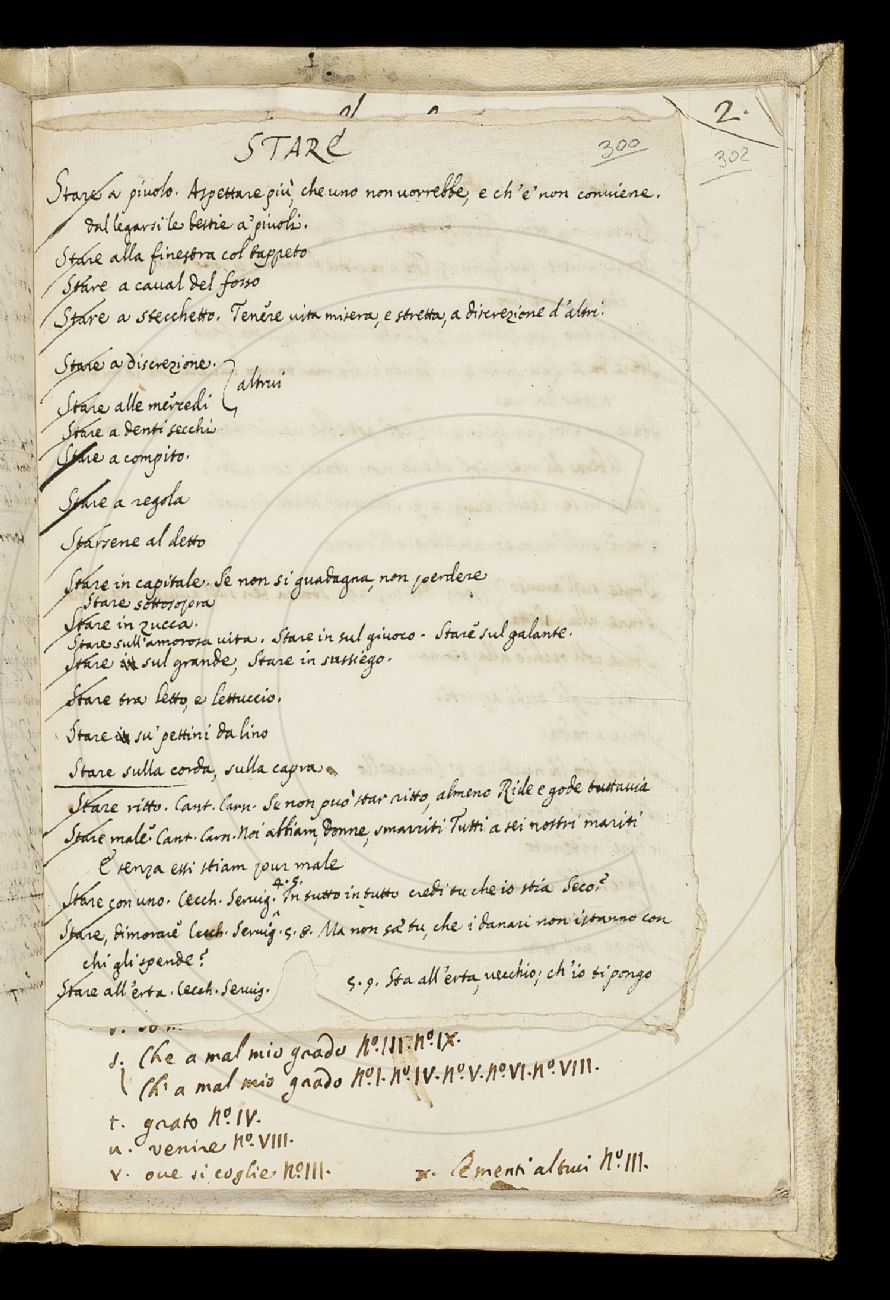 2.
STARE
300
302
Stare a piuolo. Aspettare più, che uno non uorrebbe, e ch'e' non conuiene.
dal legarsi le bestie a' piuoli.
Stare alla finestra col tappeto
Stare a caual del fosso
Stare a stecchetto. Tenére uita misera, e stretta, a discrezione d'altri.
Stare a discrezione.
altrui
Stare alle mercedi
Stare a denti secchi
Stare a compito.
Stare a regola
Starsene al detto
Stare in capitale. Se non si guadagna, non perdere
Stare sottosopra
Stare in zucca.
Stare sull'amorosa uita. Stare in sul giuoco. Stare sul galante.
Stare in sul grande, Stare in sussiego.
Stare tra letto, e lettuccio.
Stare in su' pettini da lino
Stare sulla corda, sulla capra
Stare ritto. Cant. Carn. Se non può star ritto, almeno Ride e gode tuttauia
Stare male. Cant. Carn. Noi abbiam, donne, smarriti Tutti a sei nostri mariti
E senza essi stiam pur male
Stare con uno. Cecch. Seruig. 4.5. In tutto in tutto credi tu che io stia Seco?
Stare, dimorare Cecch. Seruig. 5.8. Ma non sa' tu, che i danari non istanno con
chi gli spende?
Stare all'erta. Cecch. Seruig. 5.9. Sta all'erta, uecchio; ch'io ti pongo
s. Che a mal mio grado No. III. No. IX.
Chi a mal mio grado No. I. No. IV. No. V. No. VI. No. VIII.
t. grato No. IV.
u. uenire No. VIII.
v. oue si coglie No. III.
x. Cementi altrui No. III.